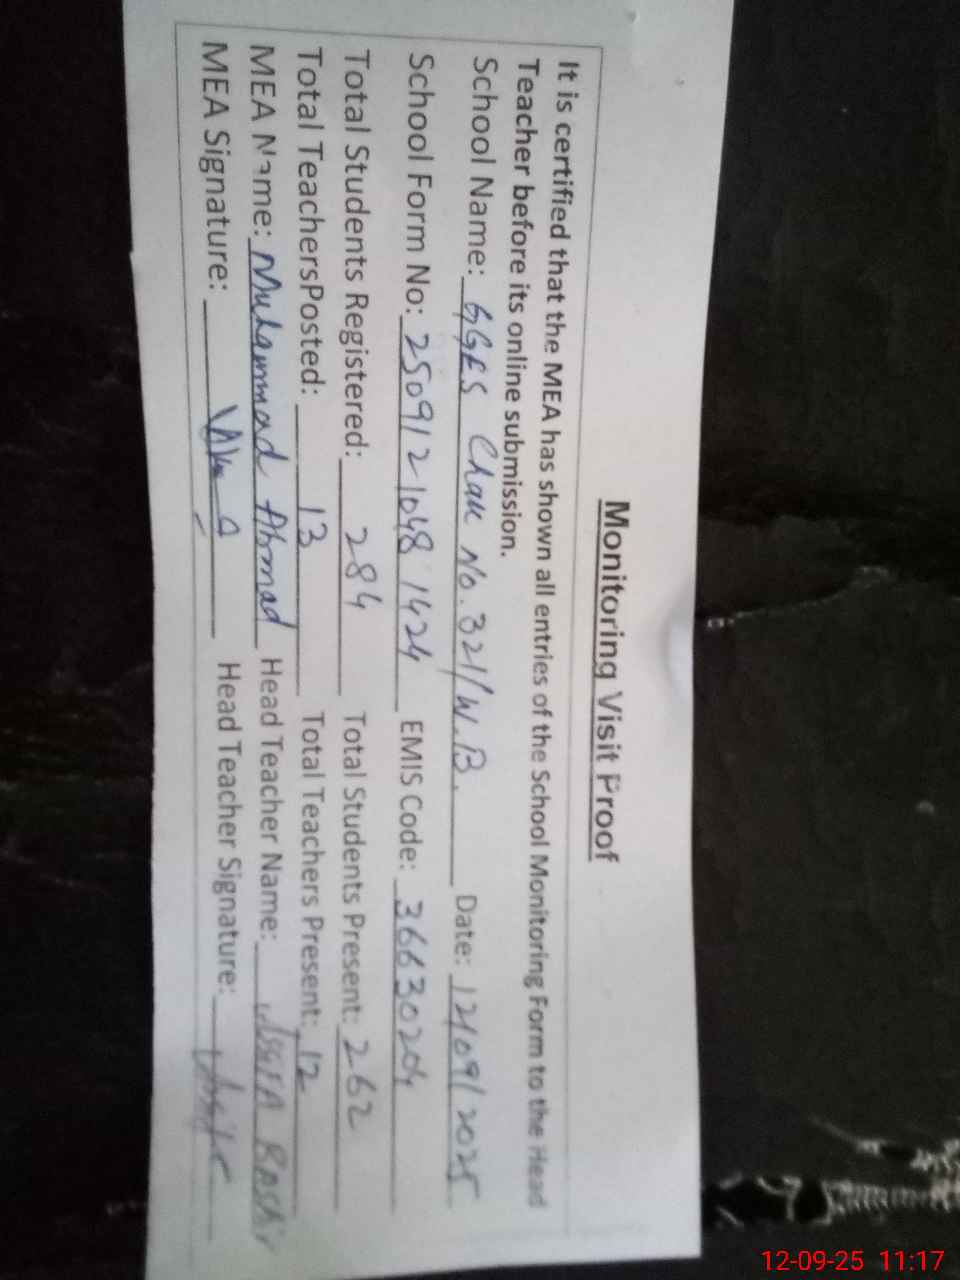 Monitoring Visit Proof
It is certified that the MEA has shown all entries of the School Monitoring Form to the Head
Teacher before its online submission.
School Name: GGES Chak No. 321/W.B. Date: 12/09/2025
School Form No: 250912 1048 1424 EMIS Code: 36630204
Total Students Registered: 284 Total Students Present: 262
Total TeachersPosted: 13 Total Teachers Present: 12
MEA Name: Muhammad Ahmad Head Teacher Name: Bashir
MEA Signature: Head Teacher Signature:
12-09-25 11:17